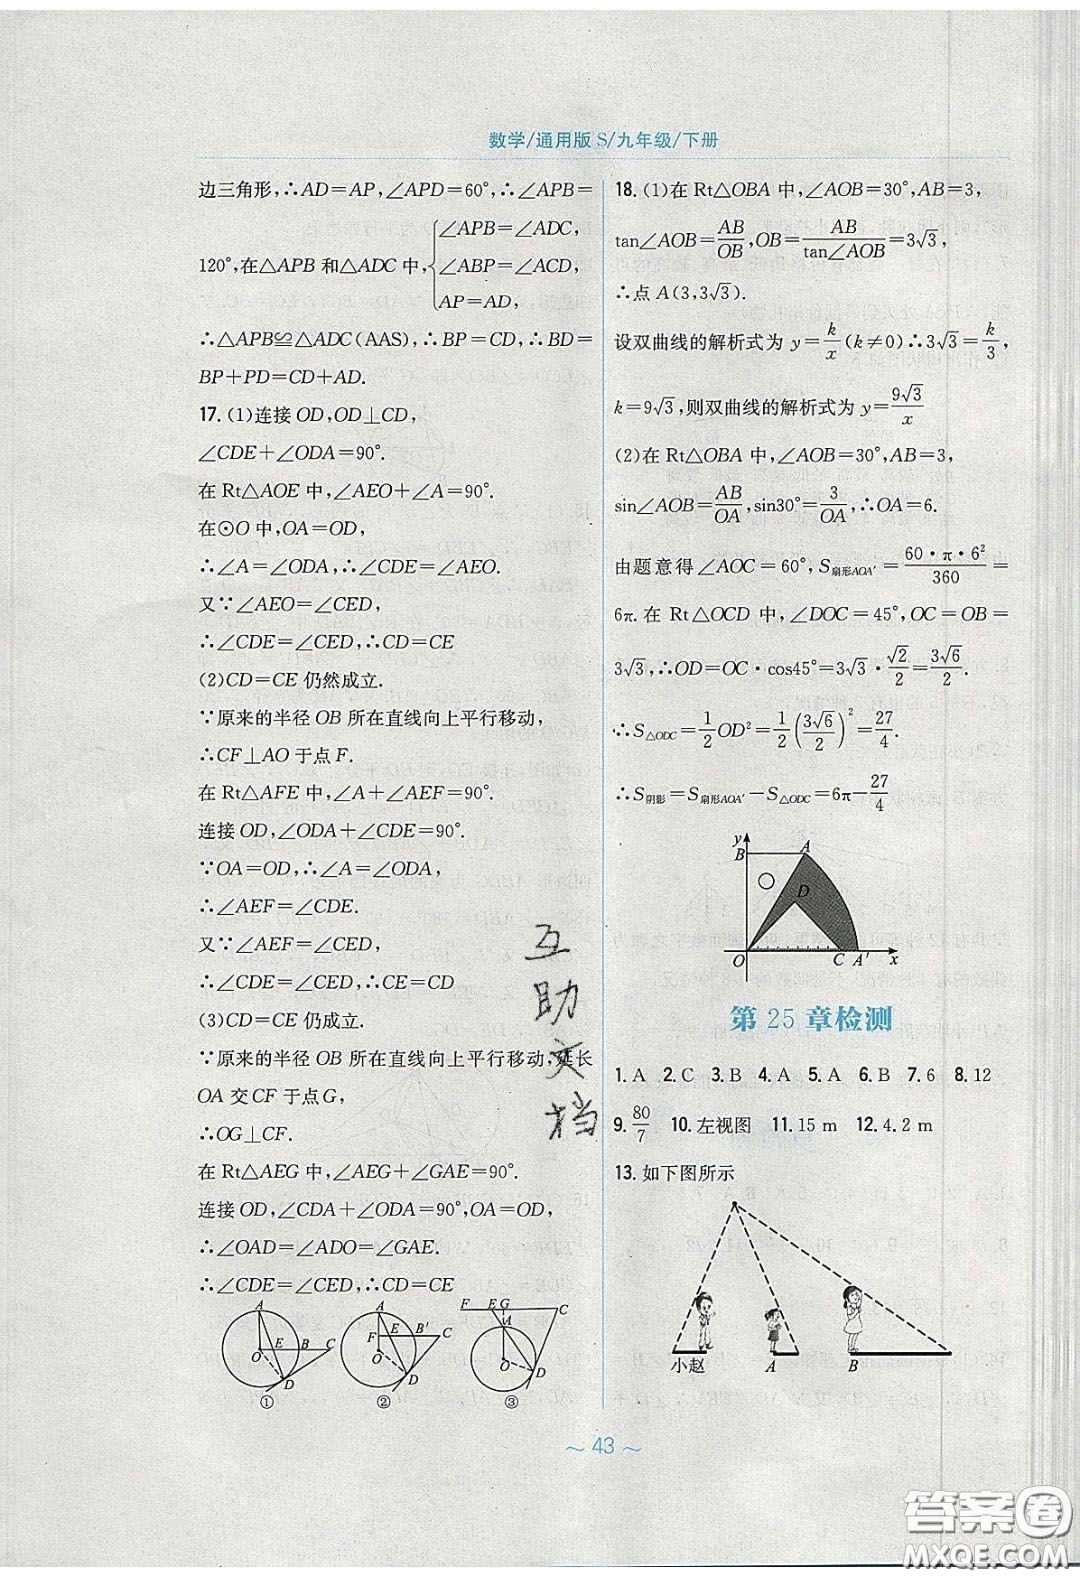 数学/通用版S/九年级/下册
边三角形,∴AD=AP,∠APD=60°,∴∠APB=
120°,在△APB和△ADC中,{∠APB=∠ADC,
∠ABP=∠ACD,
AP=AD,
∴△APB≌△ADC(AAS),∴BP=CD,∴BD=
BP+PD=CD+AD.
17.(1)连接OD,OD⊥CD,
∠CDE+∠ODA=90°.
在Rt△AOE中,∠AEO+∠A=90°.
在⊙O中,OA=OD,
∴∠A=∠ODA,∴∠CDE=∠AEO.
又∵∠AEO=∠CED,
∴∠CDE=∠CED,∴CD=CE
(2)CD=CE仍然成立.
∵原来的半径OB所在直线向上平行移动,
∴CF⊥AO于点F.
在Rt△AFE中,∠A+∠AEF=90°.
连接OD,∠ODA+∠CDE=90°.
∵OA=OD,∴∠A=∠ODA,
∴∠AEF=∠CDE.
又∵∠AEF=∠CED,
∴∠CDE=∠CED,∴CE=CD
(3)CD=CE仍成立.
∵原来的半径OB所在直线向上平行移动,延长
OA交CF于点G,
∴OG⊥CF.
在Rt△AEG中,∠AEG+∠GAE=90°.
连接OD,∠CDA+∠ODA=90°,OA=OD,
∴∠OAD=∠ADO=∠GAE.
∴∠CDE=∠CED,∴CD=CE
A E B C O D ①
A F E B′ C O D ②
F E G C A O D ③
18.(1)在Rt△OBA中,∠AOB=30°,AB=3,
tan∠AOB=AB/OB,OB=AB/tan∠AOB=3√3,
∴点A(3,3√3).
设双曲线的解析式为y=k/x(k≠0)∴3√3=k/3,
k=9√3,则双曲线的解析式为y=9√3/x
(2)在Rt△OBA中,∠AOB=30°,AB=3,
sin∠AOB=AB/OA,sin30°=3/OA,∴OA=6.
由题意得∠AOC=60°,S扇形AOA′=60·π·6²/360=
6π.在Rt△OCD中,∠DOC=45°,OC=OB=
3√3,∴OD=OC·cos45°=3√3·√2/2=3√6/2.
∴S△ODC=1/2OD²=1/2(3√6/2)²=27/4.
∴S阴影=S扇形AOA′-S△ODC=6π-27/4
y B A D O C A′ x
第25章检测
1.A 2.C 3.B 4.A 5.A 6.B 7.6 8.12
9.80/7 10.左视图 11.15 m 12.4.2 m
13.如下图所示
小赵 A B
互助文档
~ 43 ~
答案圈
MXQE.COM